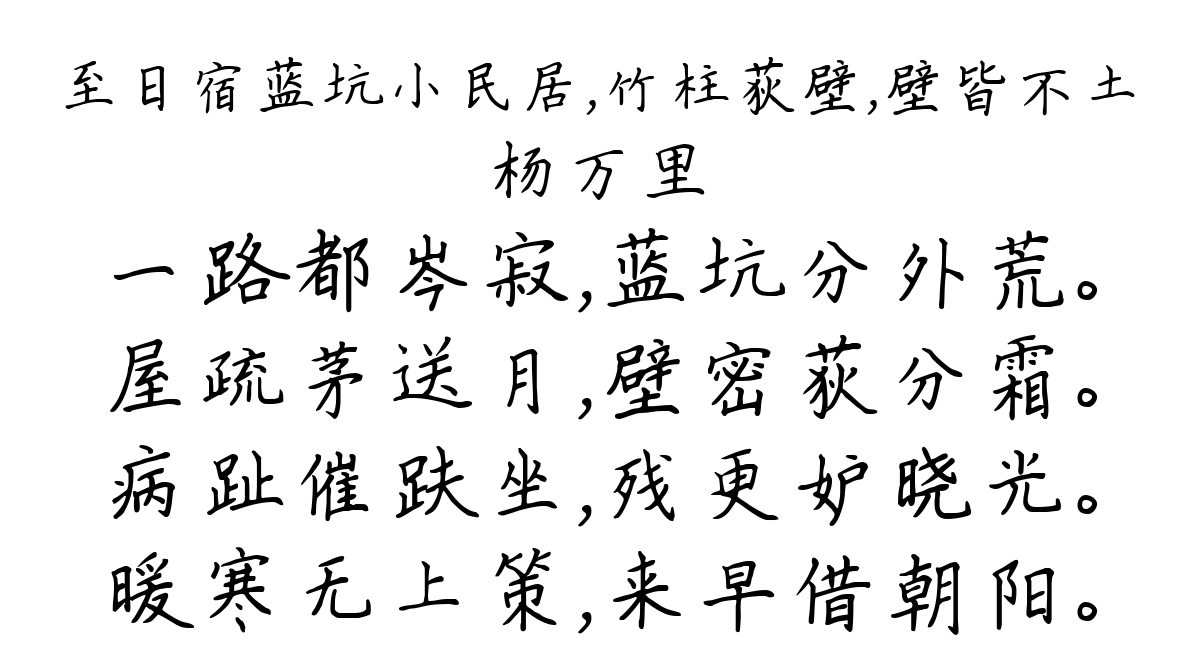 至日宿蓝坑小民居,竹柱荻壁,壁皆不土
杨万里
一路都岑寂,蓝坑分外荒。
屋疏茅送月,壁密荻分霜。
病趾催趺坐,残更妒晓光。
暖寒无上策,来早借朝阳。